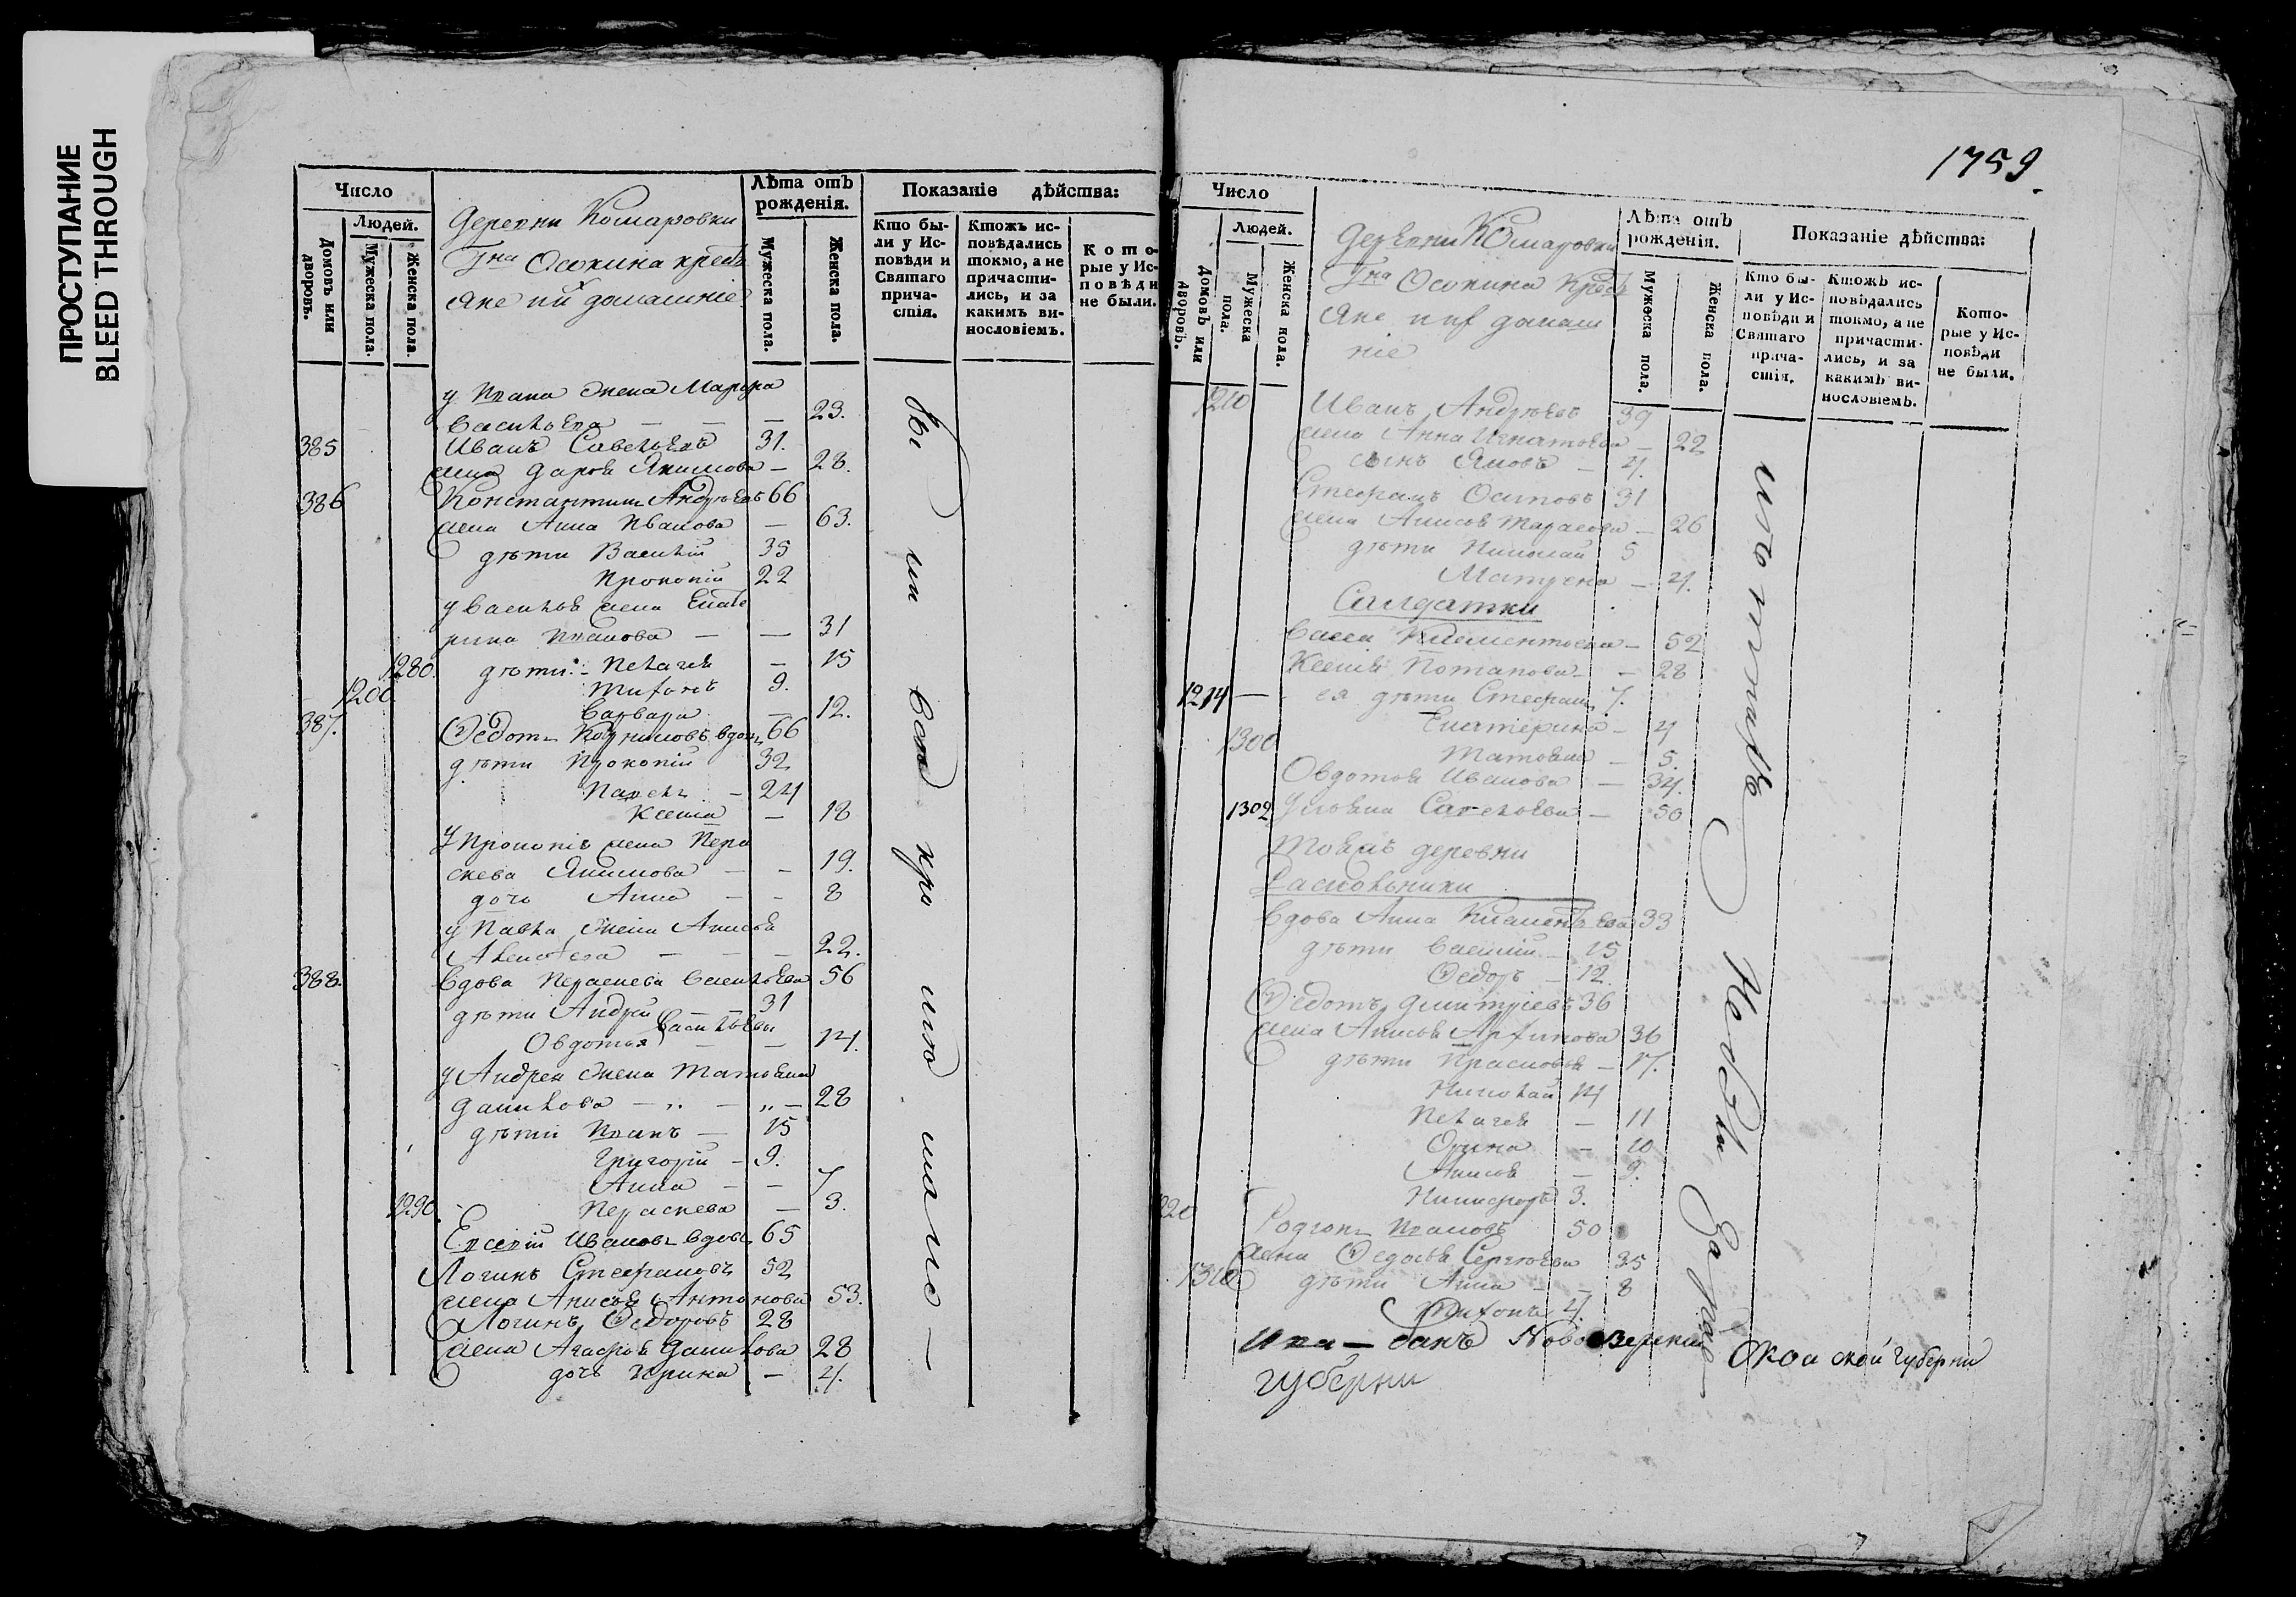 ПРОСТУПАНИЕ
BLEED THROUGH
Число
Людей.
Домовъ или дворовъ.
Мужеска пола.
Женска пола.
Деревни Комаровки
Гна Осокина крестъ
яне ихъ домашнiе
Лѣта отъ рожденiя.
Мужеска пола.
Женска пола.
Показанiе дѣйства:
Кто бы-
ли у Ис-
повѣди и
Святаго
прича-
стiя.
Ктожъ ис-
повѣдались
токмо, а не
причасти-
лись, и за
какимъ ви-
нословiемъ.
Кото-
рые у Ис-
повѣди
не были.
у Ивана жена Марфа
Васильева — — — 23.
385 Иванъ Савельевъ 31.
жена Дарья Якимова — 28.
386 Константинъ Андреевъ 66
жена Анна Иванова — 63.
дѣти Василiй 35
Прокопiй 22
у Василья жена Екате
рина Иванова — — 31
1280. дѣти: Пелагея — 15
1200. Тихонъ 9.
Варвара — 12.
387. Ѳедотъ Корниловъ вдовъ 66
дѣти Прокопiй 32
Павелъ — 24
Ксенiя — 18
У Прокопiя жена Пера
скева Якимова — — 19.
дочь Анна — — 8
у Павла жена Анисья
— — — 22.
388. Вдова Пераскева Васильева 56
дѣти Андрей 31
Васильевы
Овдотья — — 14.
у Андрея жена Татьяна
Данилова — „ — „ — 28
дѣти Иванъ — 15
Григорiй — 9.
Анна — — 7
1290. Пераскева — 3.
Евсевiй Ивановъ вдовъ 65
Логинъ Стефановъ 52
жена Анисья Антонова 53.
Логинъ Ѳедоровъ 28
жена Агафья Данилова 28
дочь Ирина — 4.
1759.
Число
Людей.
Домовъ или дворовъ.
Мужеска пола.
Женска пола.
Деревни Комаровки
Гна Осокина Крестъ
яне ихъ домаш
нiе
Лѣта отъ рожденiя.
Мужеска пола.
Женска пола.
Показанiе дѣйства:
Кто бы-
ли у Ис-
повѣди и
Святаго
прича-
стiя.
Ктожъ ис-
повѣдались
токмо, а не
причасти-
лись, и за
какимъ ви-
нословiемъ.
Кото-
рые у Ис-
повѣди
не были.
1210 Иванъ Андреевъ 39
жена Анна Игнатьева — 22
сынъ Яковъ — 4.
Стефанъ Осиповъ 31
жена Анисья Тарасова — 26
дѣти Николай 5
Матрена — 4.
Салдатки
Васса Климентьева — 52
Ксенiя Потапова — — 28
1214 — ея дѣти Стефанъ 7.
Екатерина — 4
1300 Татьяна — 5.
Овдотья Иванова — 34.
1302 Ульяна Савельева — 50
Тояжъ деревни
Раскольники
Вдова Анна Климентьева 33
дѣти Василiй — 15
Ѳедоръ — 12.
Ѳедотъ Дмитрiевъ 36
жена Анисья Архипова 36
дѣти Прасковья — 17.
Николай 14
Пелагея — 11
Орина — 10
Анисья — 9.
Никифоръ 3.
1220 Родiонъ Ивановъ 50
жена Ѳедосья Сергеева 35
1310 дѣти Анна — — 8
Тихонъ 4.
губернiи
ской губернiи